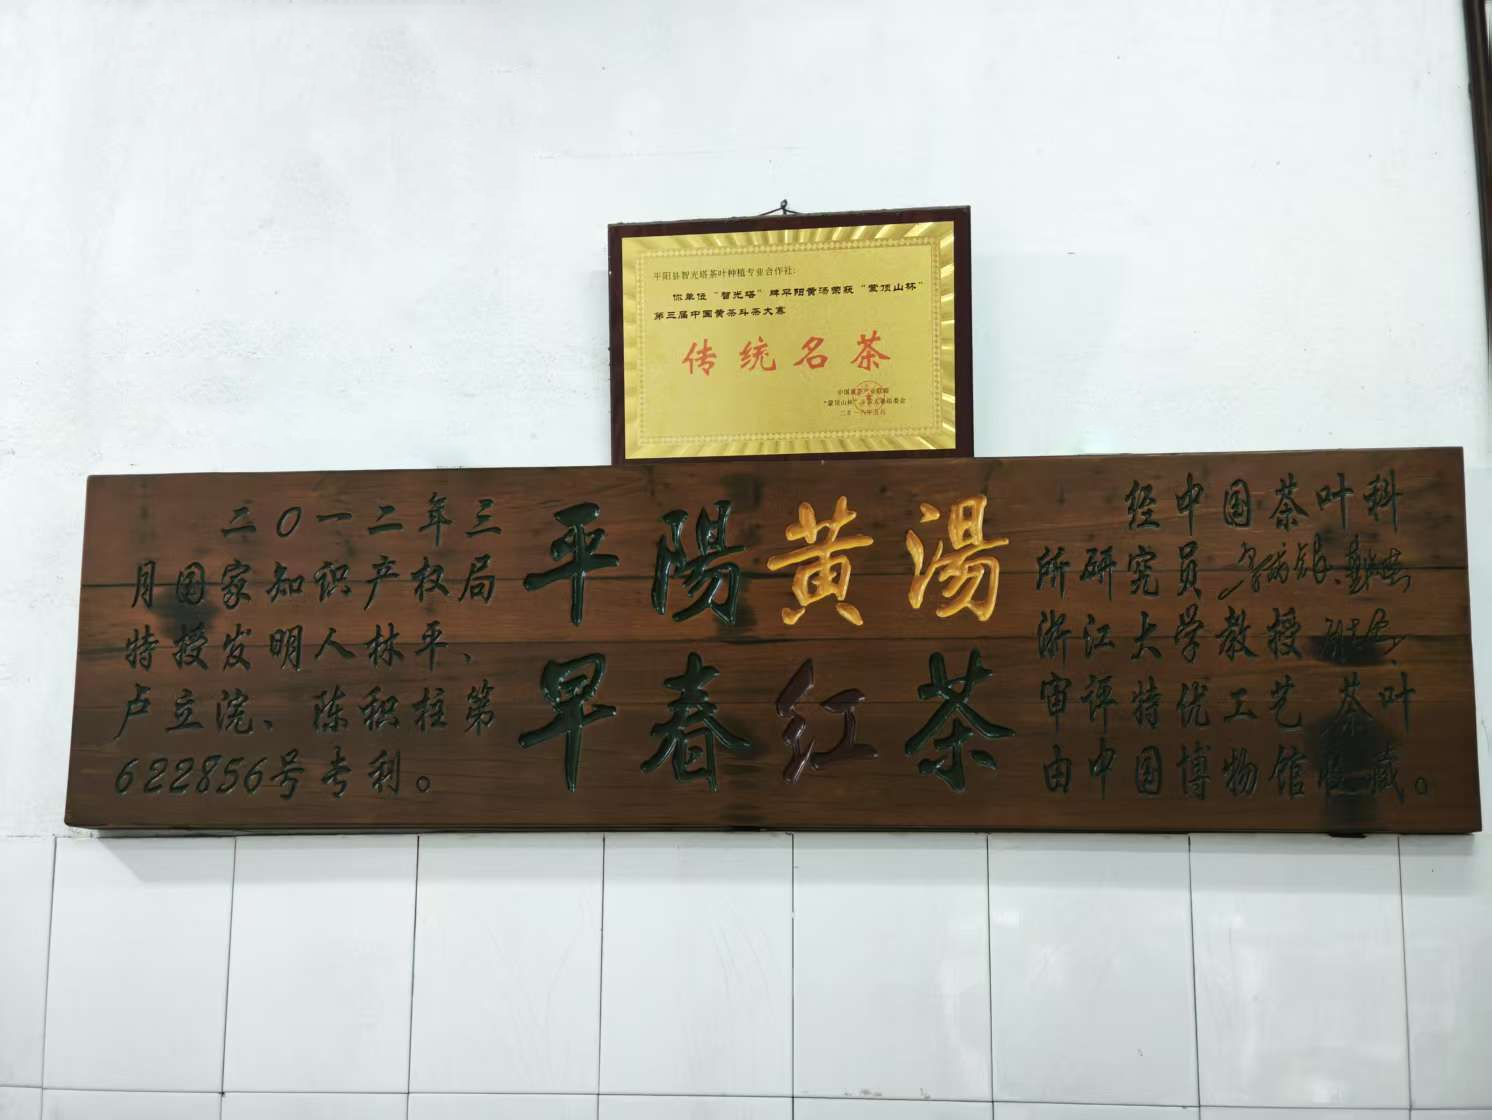 平阳县智光塔茶叶种植专业合作社:
你单位“智光塔”牌平阳黄汤荣获“蒙顶山杯”
第三届中国黄茶斗茶大赛
传统名茶
中国黄茶产业联盟
二〇一二年三
月国家知识产权局
特授发明人林平、
卢立浣、陈积柱第
622856号专利。
平陽黄湯
早春红茶
经中国茶叶科
所研究员
浙江大学教授
审评特优工艺 茶叶
由中国博物馆收藏。